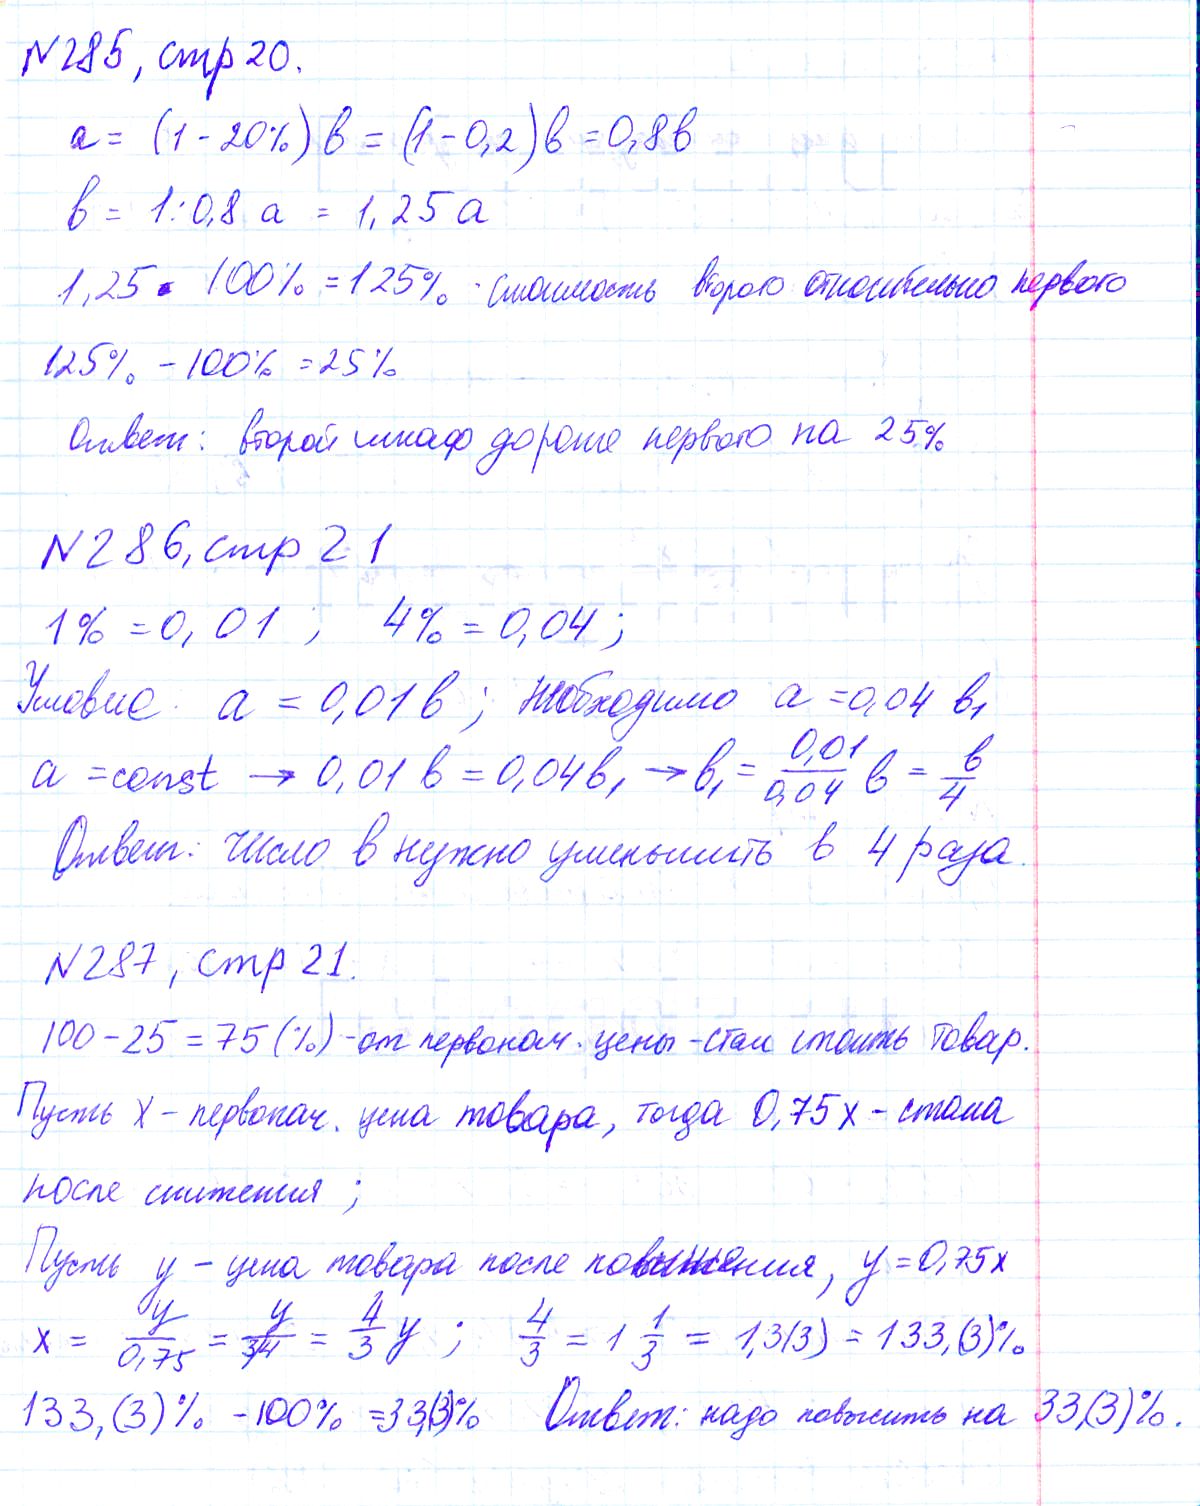 N285, стр 20.
a = (1 - 20%) b = (1 - 0,2) b = 0,8 b
b = 1:0,8 a = 1,25 a
1,25 · 100% = 125% - стоимость второго относительно первого
125% - 100% = 25%
Ответ: второй шкаф дороже первого на 25%
N286, стр 21
1% = 0,01 ; 4% = 0,04 ;
Условие a = 0,01 b ; Необходимо a = 0,04 b₁
a = const → 0,01 b = 0,04 b₁ → b₁ = 0,01/0,04 b = b/4
Ответ: число b нужно уменьшить в 4 раза.
N287, стр 21.
100 - 25 = 75 (%) - от первонач. цены - стал стоить товар.
Пусть x - первонач. цена товара, тогда 0,75x - стала
после снижения ;
Пусть y - цена товара после повышения, y = 0,75x
x = y/0,75 = y/3/4 = 4/3 y ; 4/3 = 1 1/3 = 1,3(3) = 133,(3)%
133,(3)% - 100% = 33,(3)% Ответ: надо повысить на 33,(3)%.